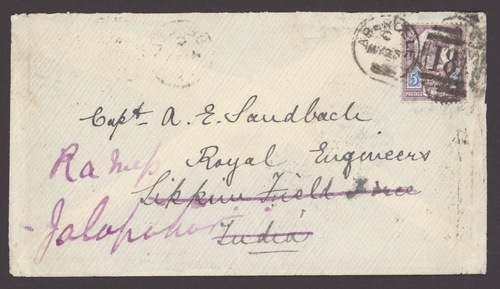 ABERDEEN
C
MY 23
18
5
POSTAGE
Capt. A. E. Sandbach
Royal Engineers
Sikkim Field Force
India
Jalapahar